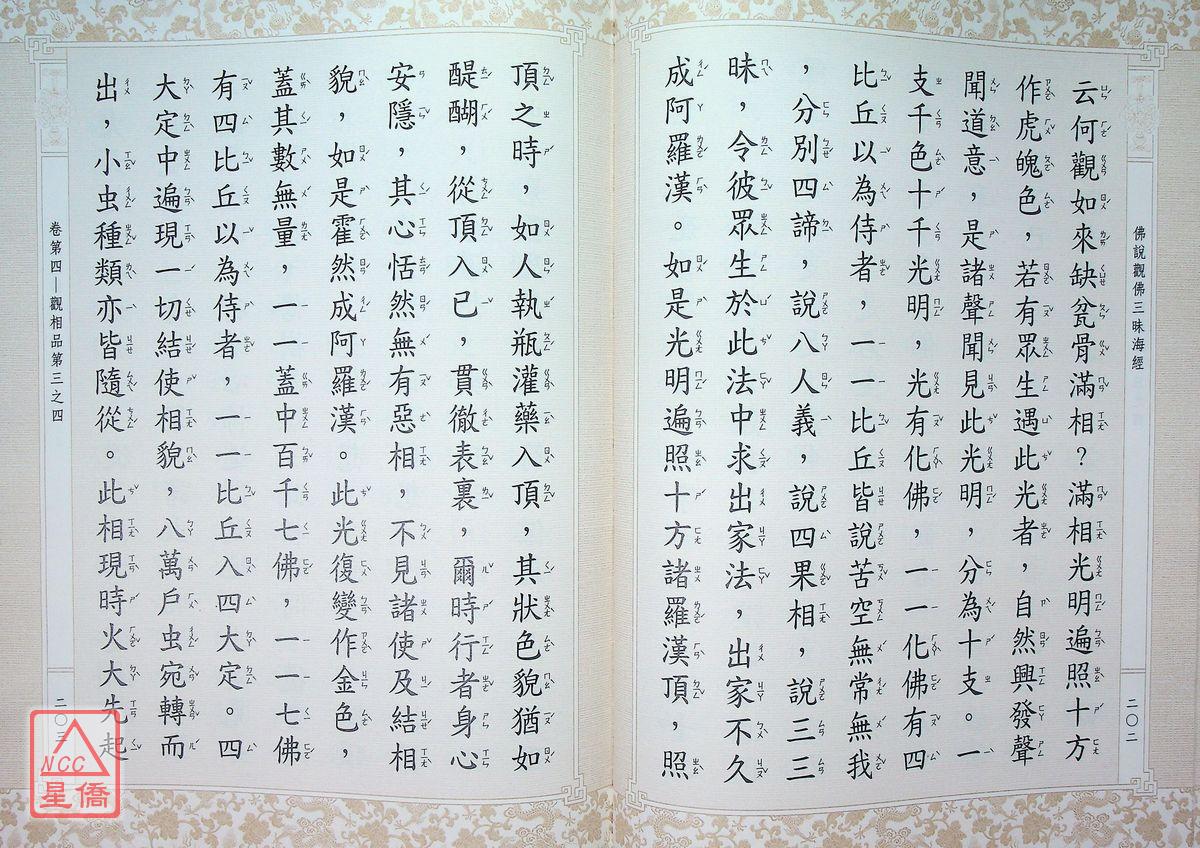 佛說觀佛三昧海經
二〇二
云何觀如來缺瓫骨滿相?滿相光明遍照十方
作虎魄色,若有眾生遇此光者,自然興發聲
聞道意,是諸聲聞見此光明,分為十支。一
支千色十千光明,光有化佛,一一化佛有四
比丘以為侍者,一一比丘皆說苦空無常無我
,分別四諦,說八人義,說四果相,說三三
昧,令彼眾生於此法中求出家法,出家不久
成阿羅漢。如是光明遍照十方諸羅漢頂,照
頂之時,如人執瓶灌藥入頂,其狀色貌猶如
醍醐,從頂入已,貫徹表裏,爾時行者身心
安隱,其心恬然無有惡相,不見諸使及結相
貌,如是霍然成阿羅漢。此光復變作金色,
蓋其數無量,一一蓋中百千七佛,一一七佛
有四比丘以為侍者,一一比丘入四大定。四
大定中遍現一切結使相貌,八萬戶虫宛轉而
出,小虫種類亦皆隨從。此相現時火大先起
卷第四—觀相品第三之四
二〇三
NCC
星僑